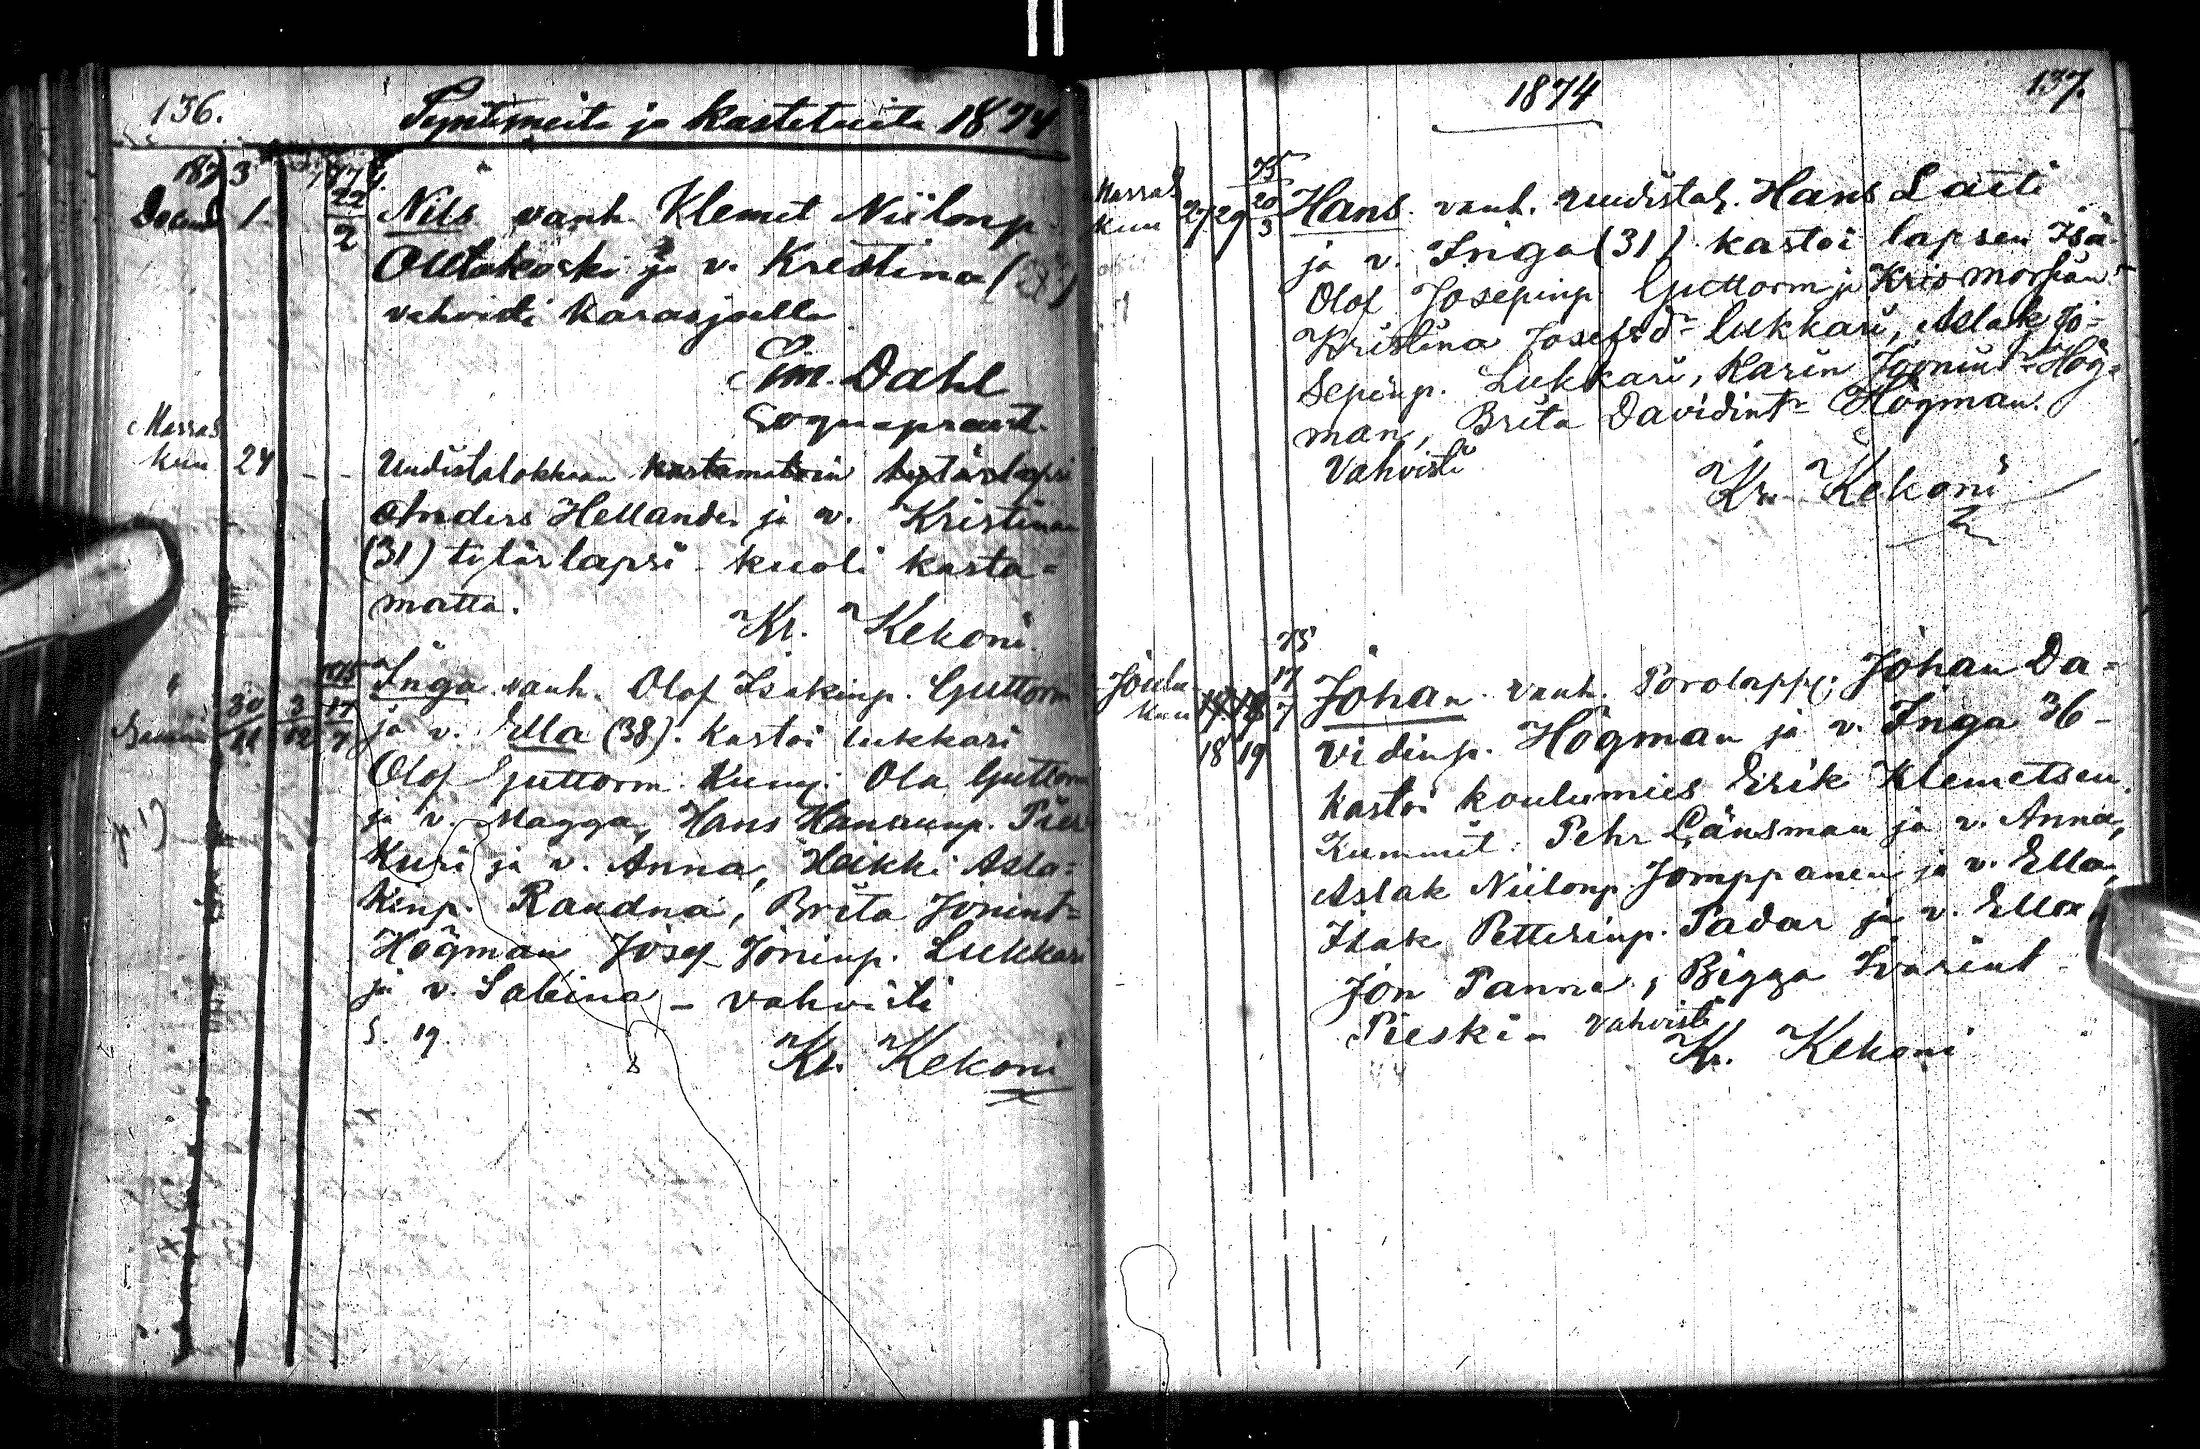 136.
Syntyneitä ja Kastetuita 1874
187 3
Nils vanh. Klemet Niilonp.
Outakoski ja v. Kristina
vahvisti Karasjoella
Dahl
Marras
kuu 24 - -
Uudistalokkaan kastamatoin tytärlapsi
Anders Hellander ja v. Kristinan
(31) tytärlapsi kuoli kasta=
matta.
Kr. Kekoni
" 30/11 3/12 75 17/7
Inga vanh. Olof Isakinp. Guttorm
ja v. Ella (38). Kastoi lukkari
Olof Guttorm. Kumj. Ola Guttorm
ja v. Magga, Hans Hansinp. Pier
Kuri ja v. Anna, Heikki Asla=
kinp. Raudna, Brita Jonint=
Högman Josef Joninp. Lukkari
ja v. Sabina - vahvisti
S. 19.
Kr. Kekoni
1874
137.
Marras
kuu 27 29 75 20/3
Hans. vanh. uudistal. Hans Laiti
ja v. Inga (31) kastoi lapsen Isä
Olof Josepinp. Guttorm ja
Kristina Josefsd= Lukkari, Aslak Jo=
sepinp. Lukkari, Karin Hög=
man, Brita Davidint= Högman.
Vahvisti
Kr. Kekoni
Joulu
kuu 75 17/7
18 19
Johan vanh. Porolapp. Johan Da=
vidinp. Högman ja v. Inga 36 -
kastoi koulumies Erik Klemetsen.
Kummit: Pehr Länsman ja v. Anna,
Aslak Niilonp. Jomppanen ja v. Ella,
Isak Petterinp. Padar ja v. Ella,
Jon Panne, Bigga Ivarint
Pieski - vahvisti
Kr. Kekoni